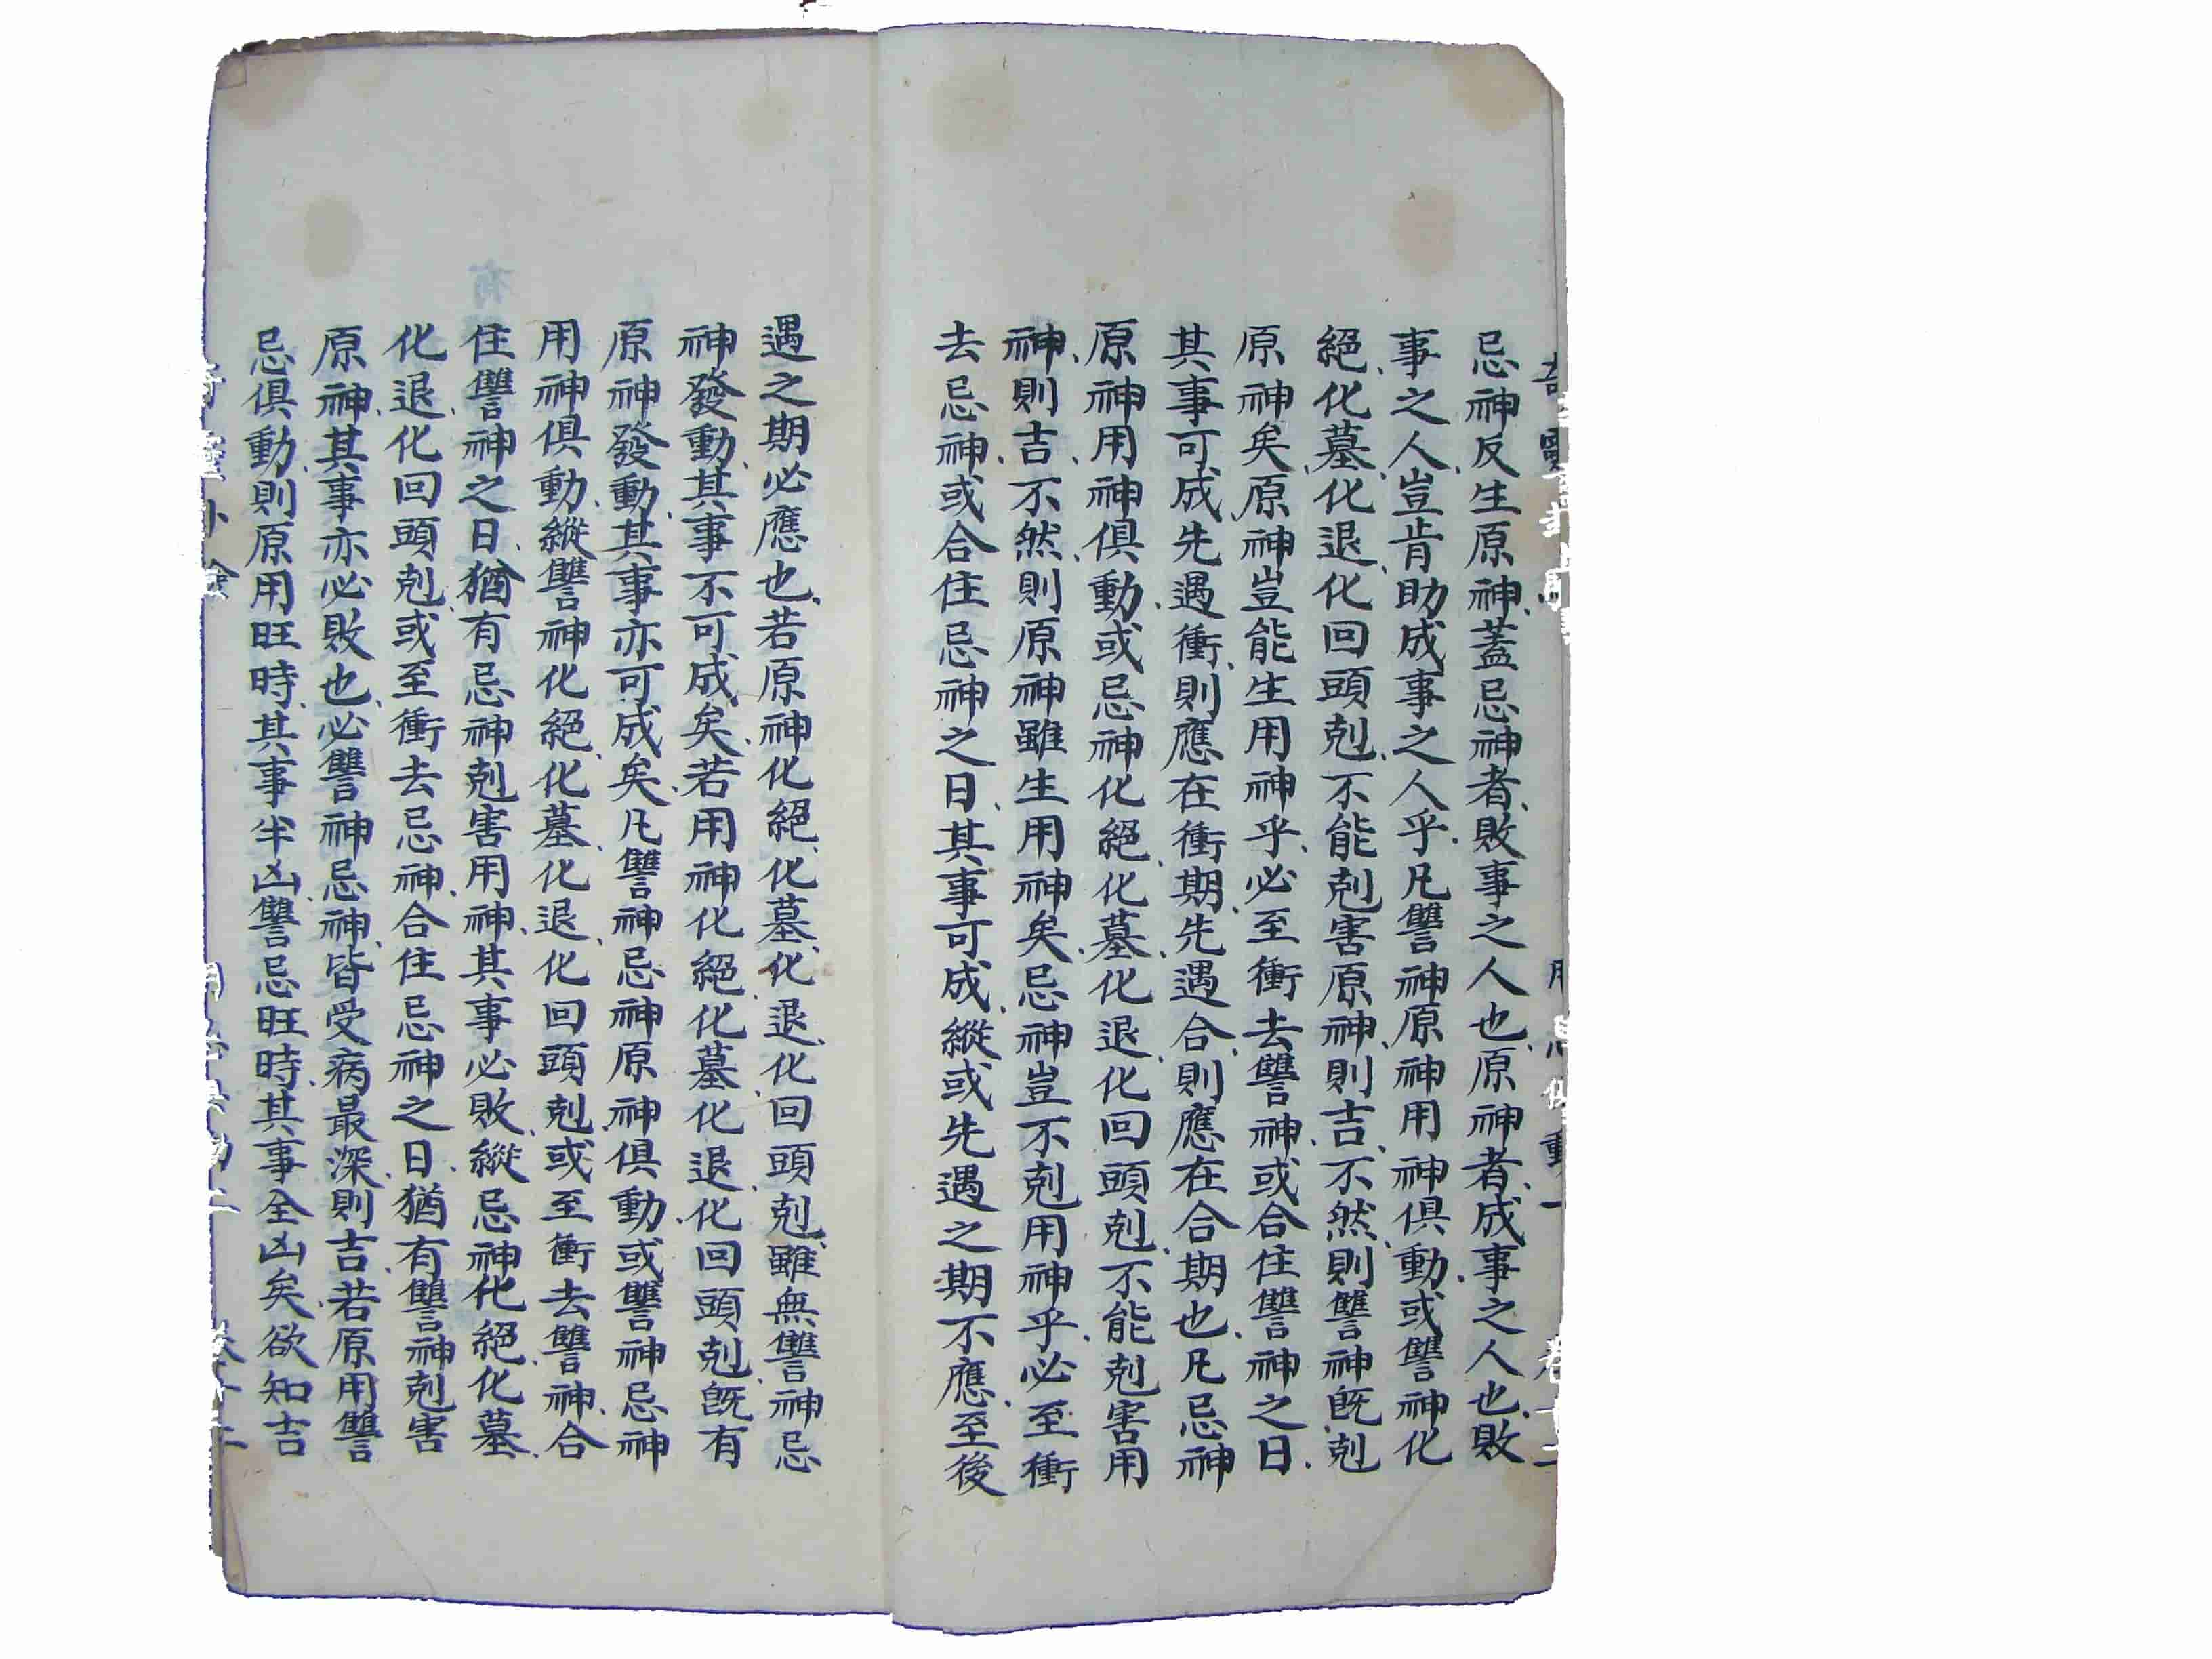 忌神、反生原神、蓋忌神者、敗事之人也、原神者、成事之人也、敗
事之人、豈肯助成事之人乎、凡讐神原神用神俱動、或讐神化
絕、化墓、化退、化回頭剋、不能剋害原神、則吉、不然、則讐神既剋
原神矣、原神豈能生用神乎、必至衝去讐神、或合住讐神之日、
其事可成、先遇衝、則應在衝期、先遇合、則應在合期也、凡忌神
原神用神俱動、或忌神化絕、化墓、化退、化回頭剋、不能剋害用
神、則吉、不然、則原神雖生用神矣、忌神豈不剋用神乎、必至衝
去忌神、或合住忌神之日、其事可成、縱或先遇之期不應、至後
遇之期必應也、若原神化絕、化墓、化退、化回頭剋、雖無讐神忌
神發動、其事不可成矣、若用神化絕化墓化退、化回頭剋、既有
原神發動、其事亦可成矣、凡讐神忌神原神俱動、或讐神忌神
用神俱動、縱讐神化絕、化墓、化退、化回頭剋、或至衝去讐神、合
住讐神之日、猶有忌神剋害用神、其事必敗、縱忌神化絕、化墓、
化退、化回頭剋、或至衝去忌神、合住忌神之日、猶有讐神剋害
原神、其事亦必敗也、必讐神忌神、皆受病最深、則吉、若原用讐
忌俱動、則原用旺時、其事半凶、讐忌旺時、其事全凶矣、欲知吉